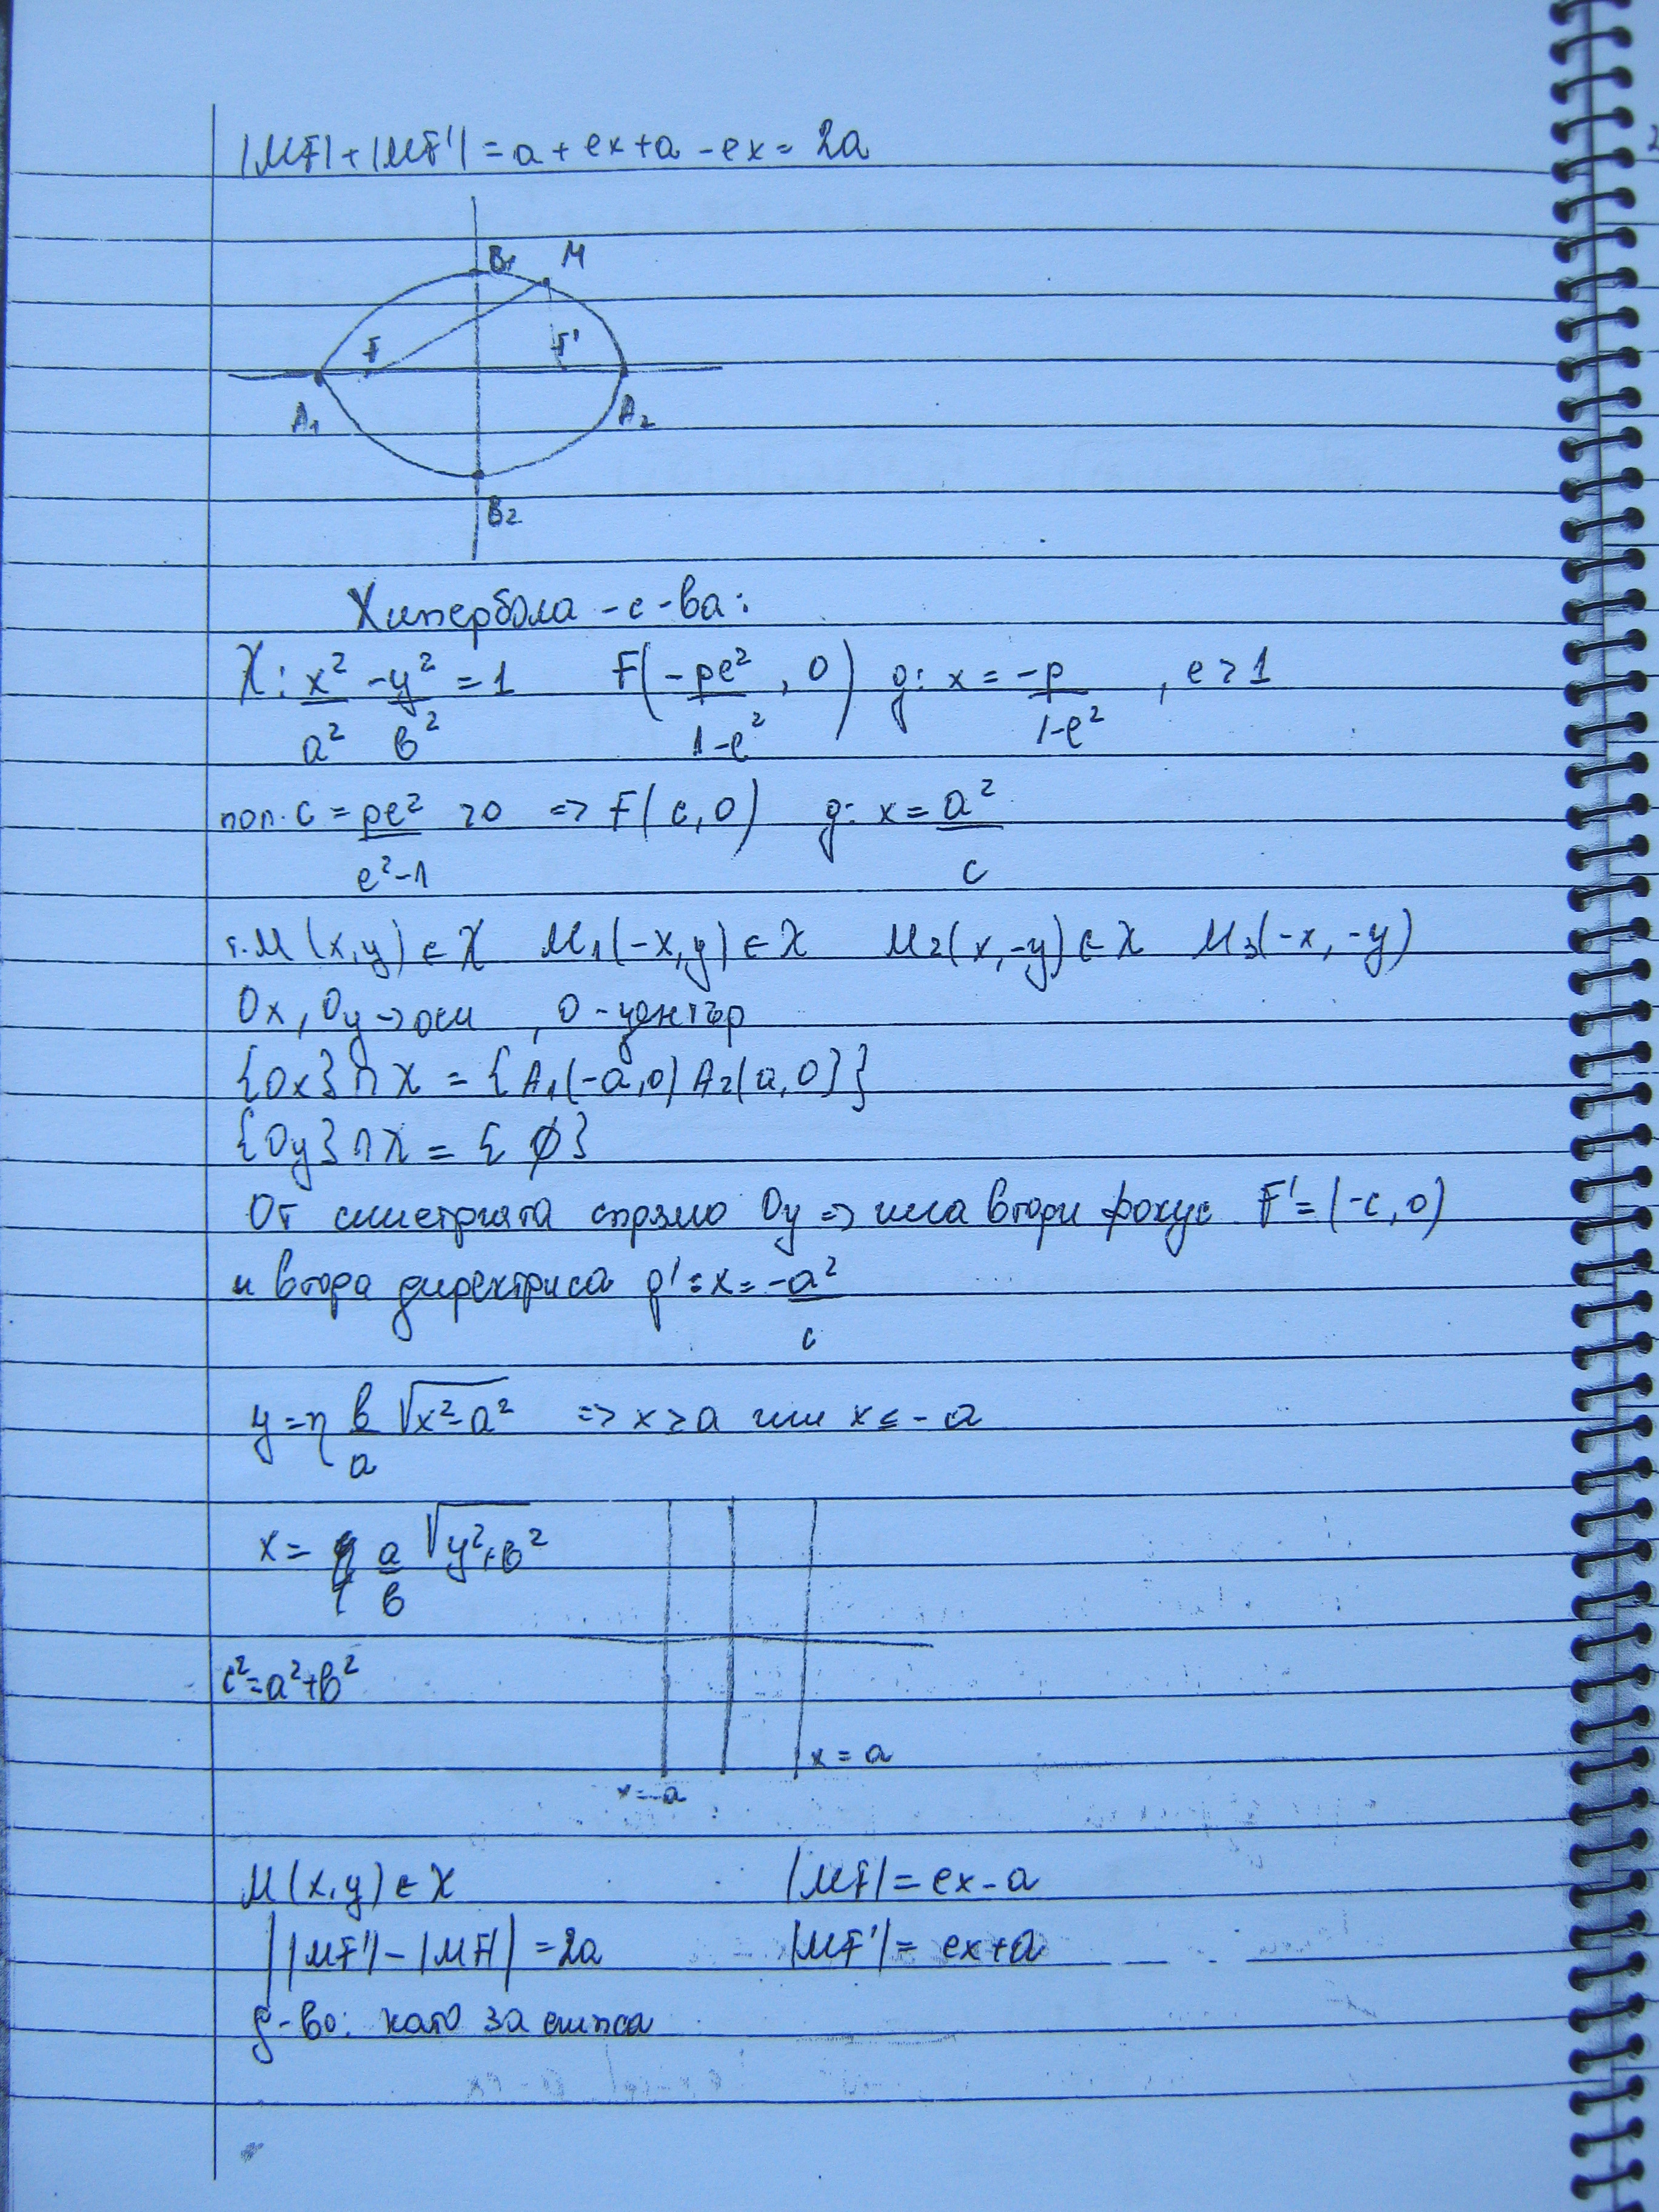 |MF|+|MF'| = a+ex+a-ex = 2a
B₁ M
F F'
A₁ A₂
B₂
Хипербола -с-ва:
X: x²/a² - y²/b² = 1 F(-pe²/1-e², 0) g: x = -p/1-e² , e>1
пол. c = pe²/e²-1 >0 => F(c,0) g: x = a²/c
т.M(x,y)∈X M₁(-x,y)∈X M₂(x,-y)∈X M₃(-x,-y)
Ox, Oy → оси , O - център
{Ox}∩X = {A₁(-a,0) A₂(a,0)}
{Oy}∩X = {∅}
От симетрията спрямо Oy => има втори фокус F' = (-c,0)
и втора директриса g': x = -a²/c
y = η b/a √x²-a² => x≥a или x≤-a
x = η a/b √y²+b²
c²=a²+b²
x = a
x=-a
M(x,y)∈X |MF| = ex-a
||MF'|-|MF|| = 2a |MF'| = ex+a
g-во: като за елипса